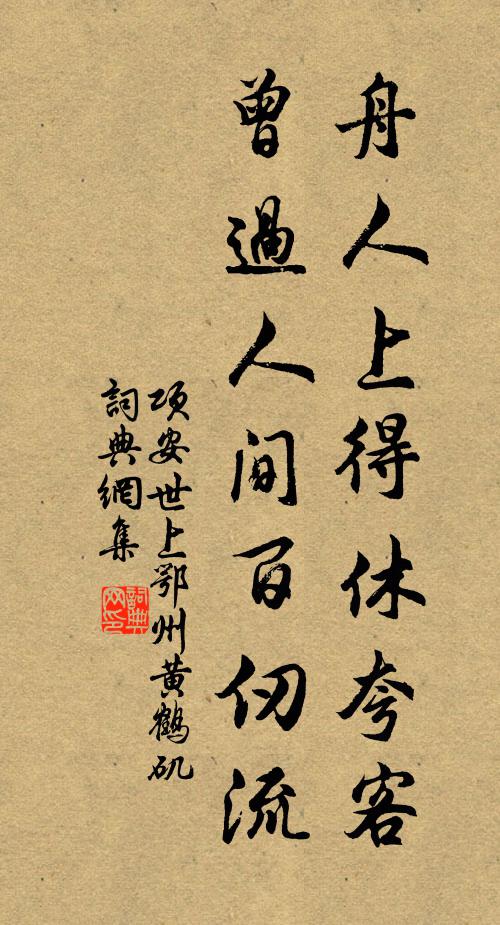 舟人上得休夸客
曾過人間百仞流
項安世上鄂州黄鶴矶
詞典網集
詞典
网印